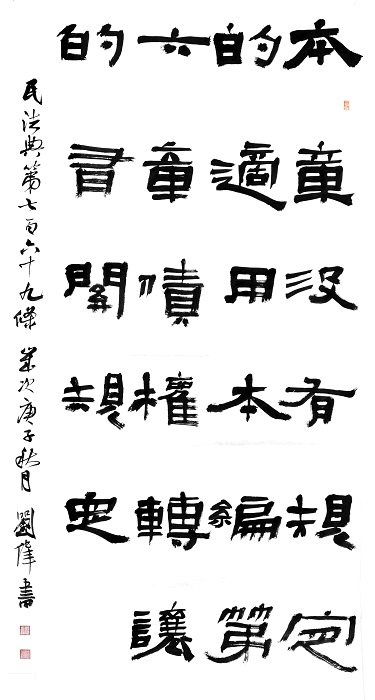 本章没有規定
的適用本編第
六章債權轉讓
的有關規定
民法典第七百六十九條 歲次庚子秋月 劉偉書